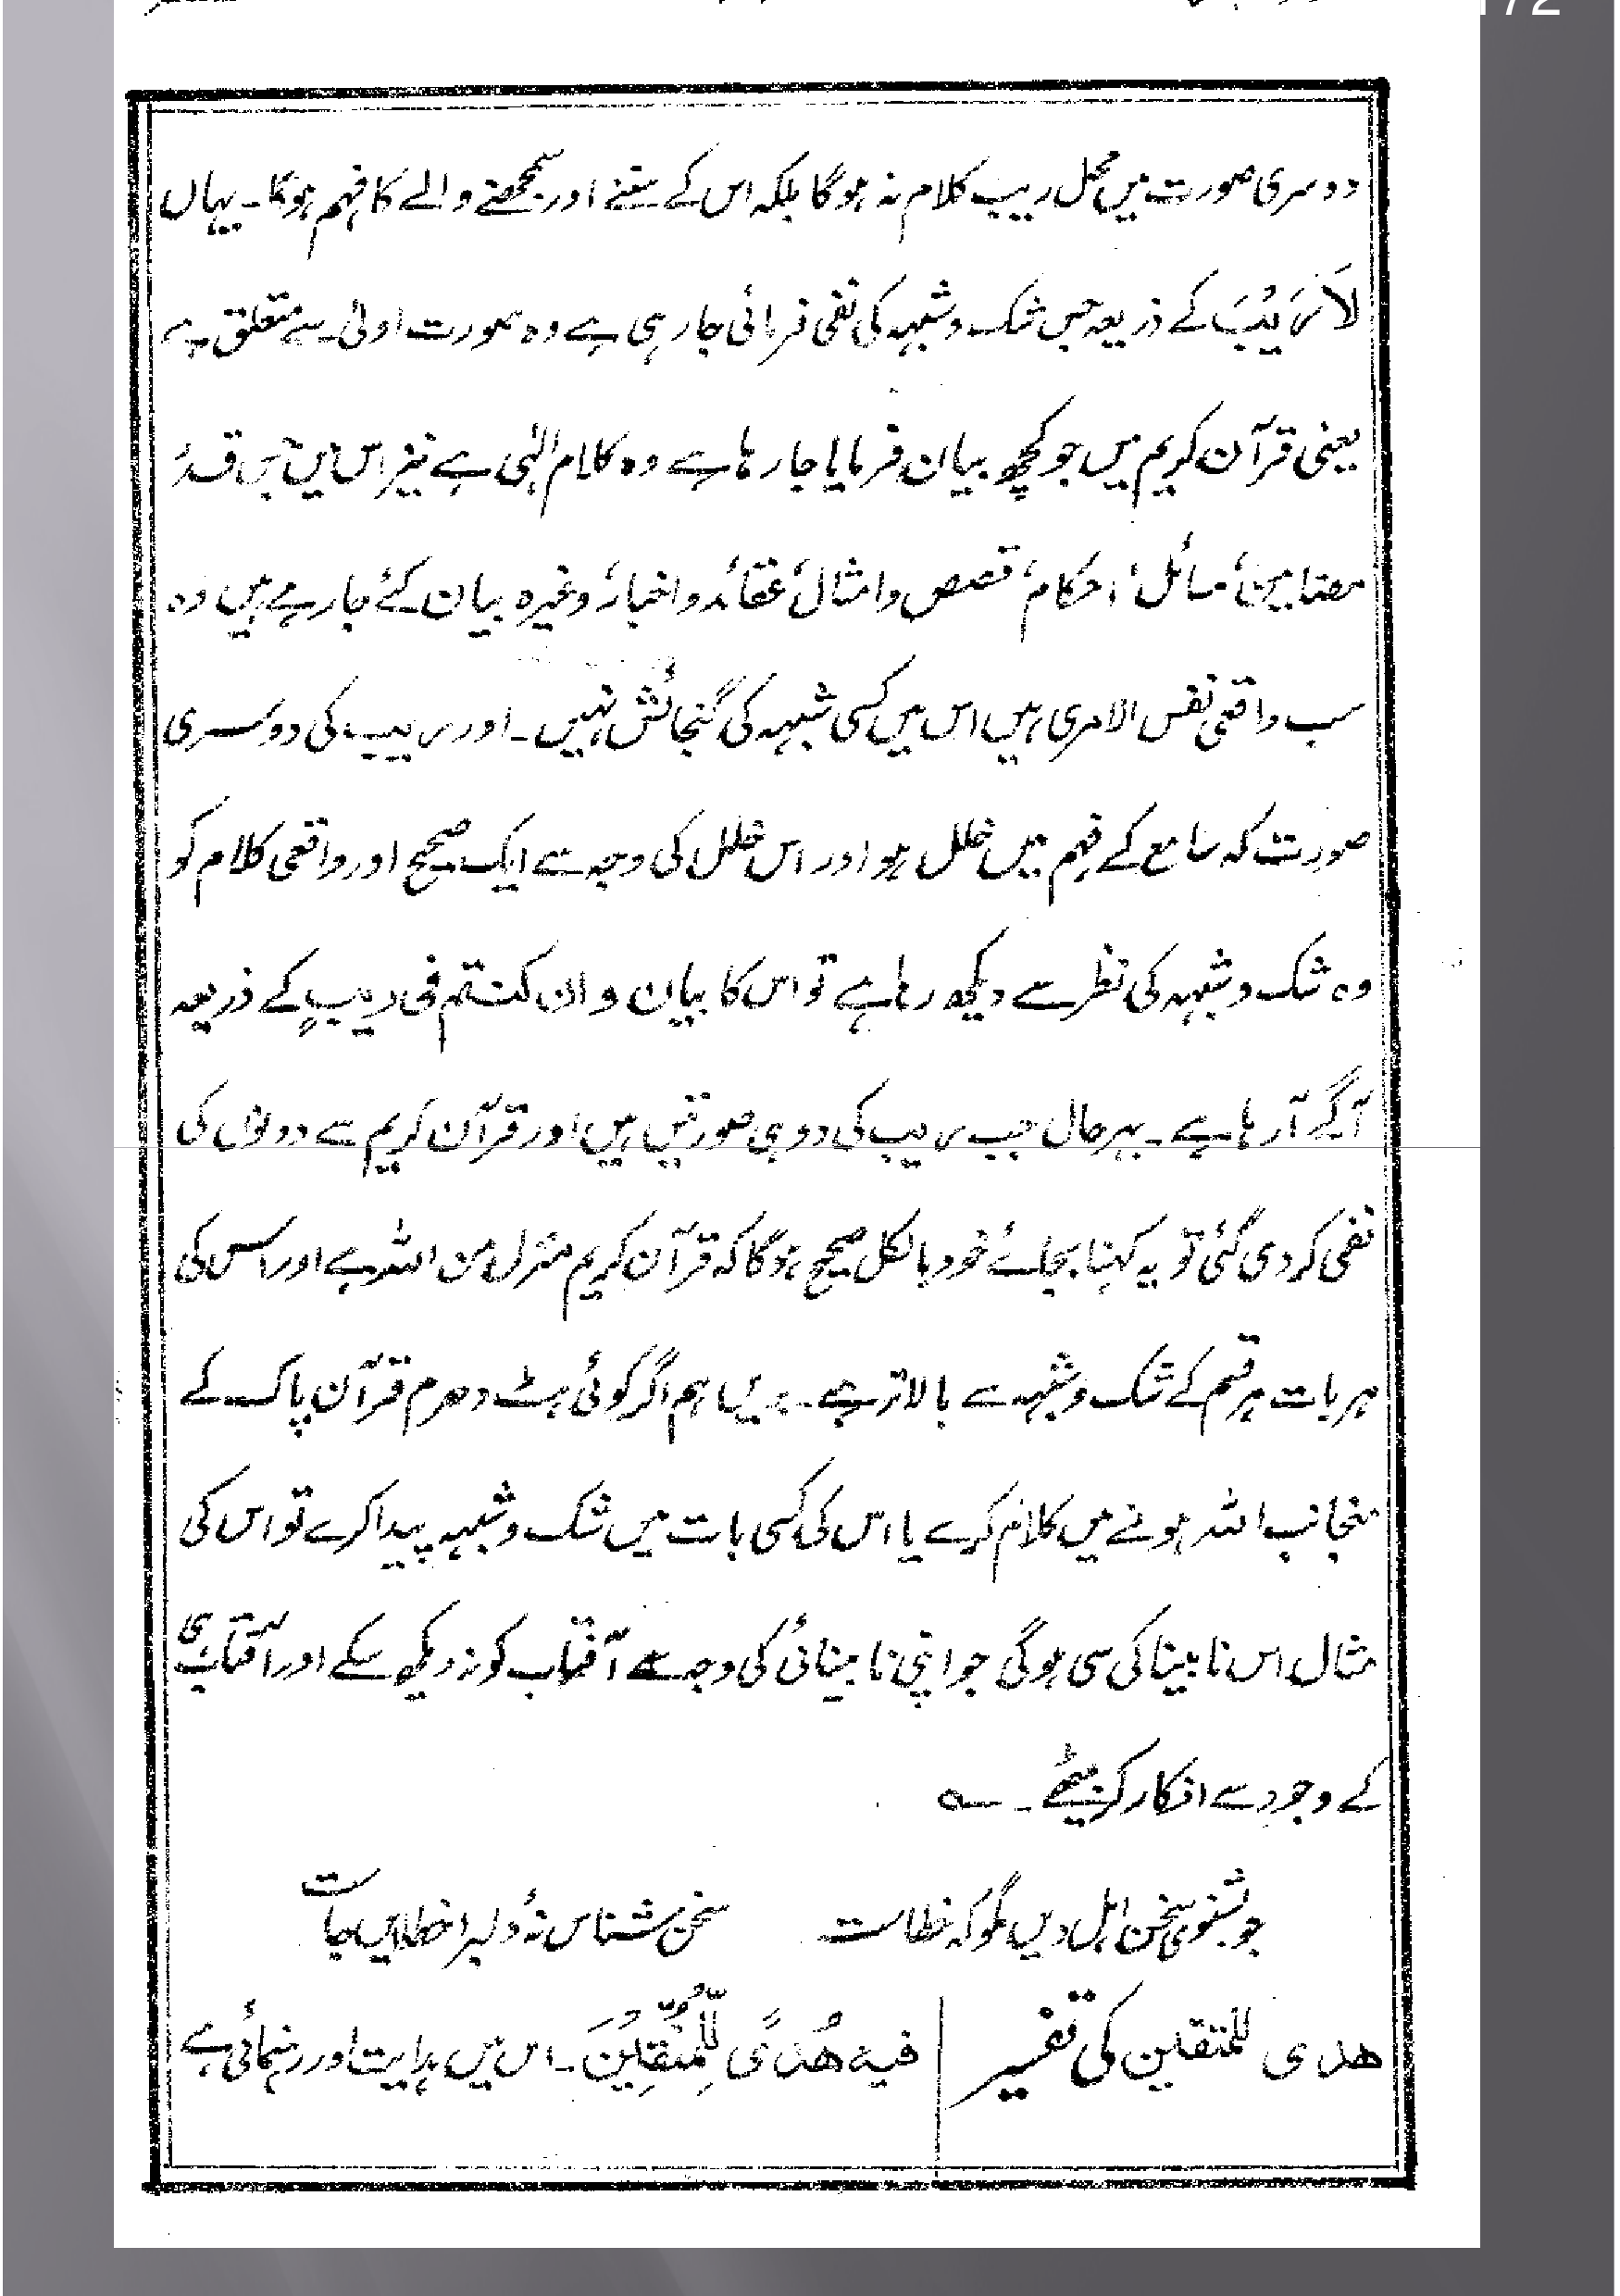 دوسری صورت میں محل ریب کلام نہ ہوگا بلکہ اس کے سننے اور سمجھنے والے کا فہم ہوگا۔ یہاں
لَا رَیْبَ کے ذریعہ جس شک و شبہہ کی نفی فرمائی جا رہی ہے وہ صورت اولیٰ سے متعلق ہے
یعنی قرآن کریم میں جو کچھ بیان فرمایا جا رہا ہے وہ کلام الٰہی ہے نیز اس میں جس قدر
مضامین، مسائل، احکام، قصص و امثال، عقائد و اخبار، وغیرہ بیان کئے جا رہے ہیں وہ
سب واقعی نفس الامری ہیں اس میں کسی شبہہ کی گنجائش نہیں۔ اور ریب کی دوسری
صورت کہ سامع کے فہم میں خلل ہو اور اس خلل کی وجہ سے ایک صحیح اور واقعی کلام کو
وہ شک و شبہہ کی نظر سے دیکھ رہا ہے تو اس کا بیان و ان کنتم فی ریبٍ کے ذریعہ
آگے آ رہا ہے۔ بہر حال جب ریب کی دو ہی صورتیں ہیں اور قرآن کریم سے دونوں کی
نفی کر دی گئی تو یہ کہنا بجائے خود بالکل صحیح ہوگا کہ قرآن کریم منزل من اللہ ہے اور اس کی
ہر بات ہر قسم کے شک و شبہہ سے بالاتر ہے۔ بریں ہم اگر کوئی ہٹ دھرم قرآن پاک کے
منجانب اللہ ہونے میں کلام کرے یا اس کی کسی بات میں شک و شبہہ پیدا کرے تو اس کی
مثال اس نابینا کی سی ہوگی جو اپنی نابینائی کی وجہ سے آفتاب کو نہ دیکھ سکے اور آفتاب ہی
کے وجود سے انکار کر بیٹھے۔ ؎
چو بشنوی سخن اہل دیں مگو کہ خطاست سخن شناس نۂ دلبرا خطا ایں جاست
ھدی للمتقین کی تفسیر فیه هُدًی لِّلْمُتَّقِیْنَ۔ اس میں ہدایت اور رہنمائی ہے